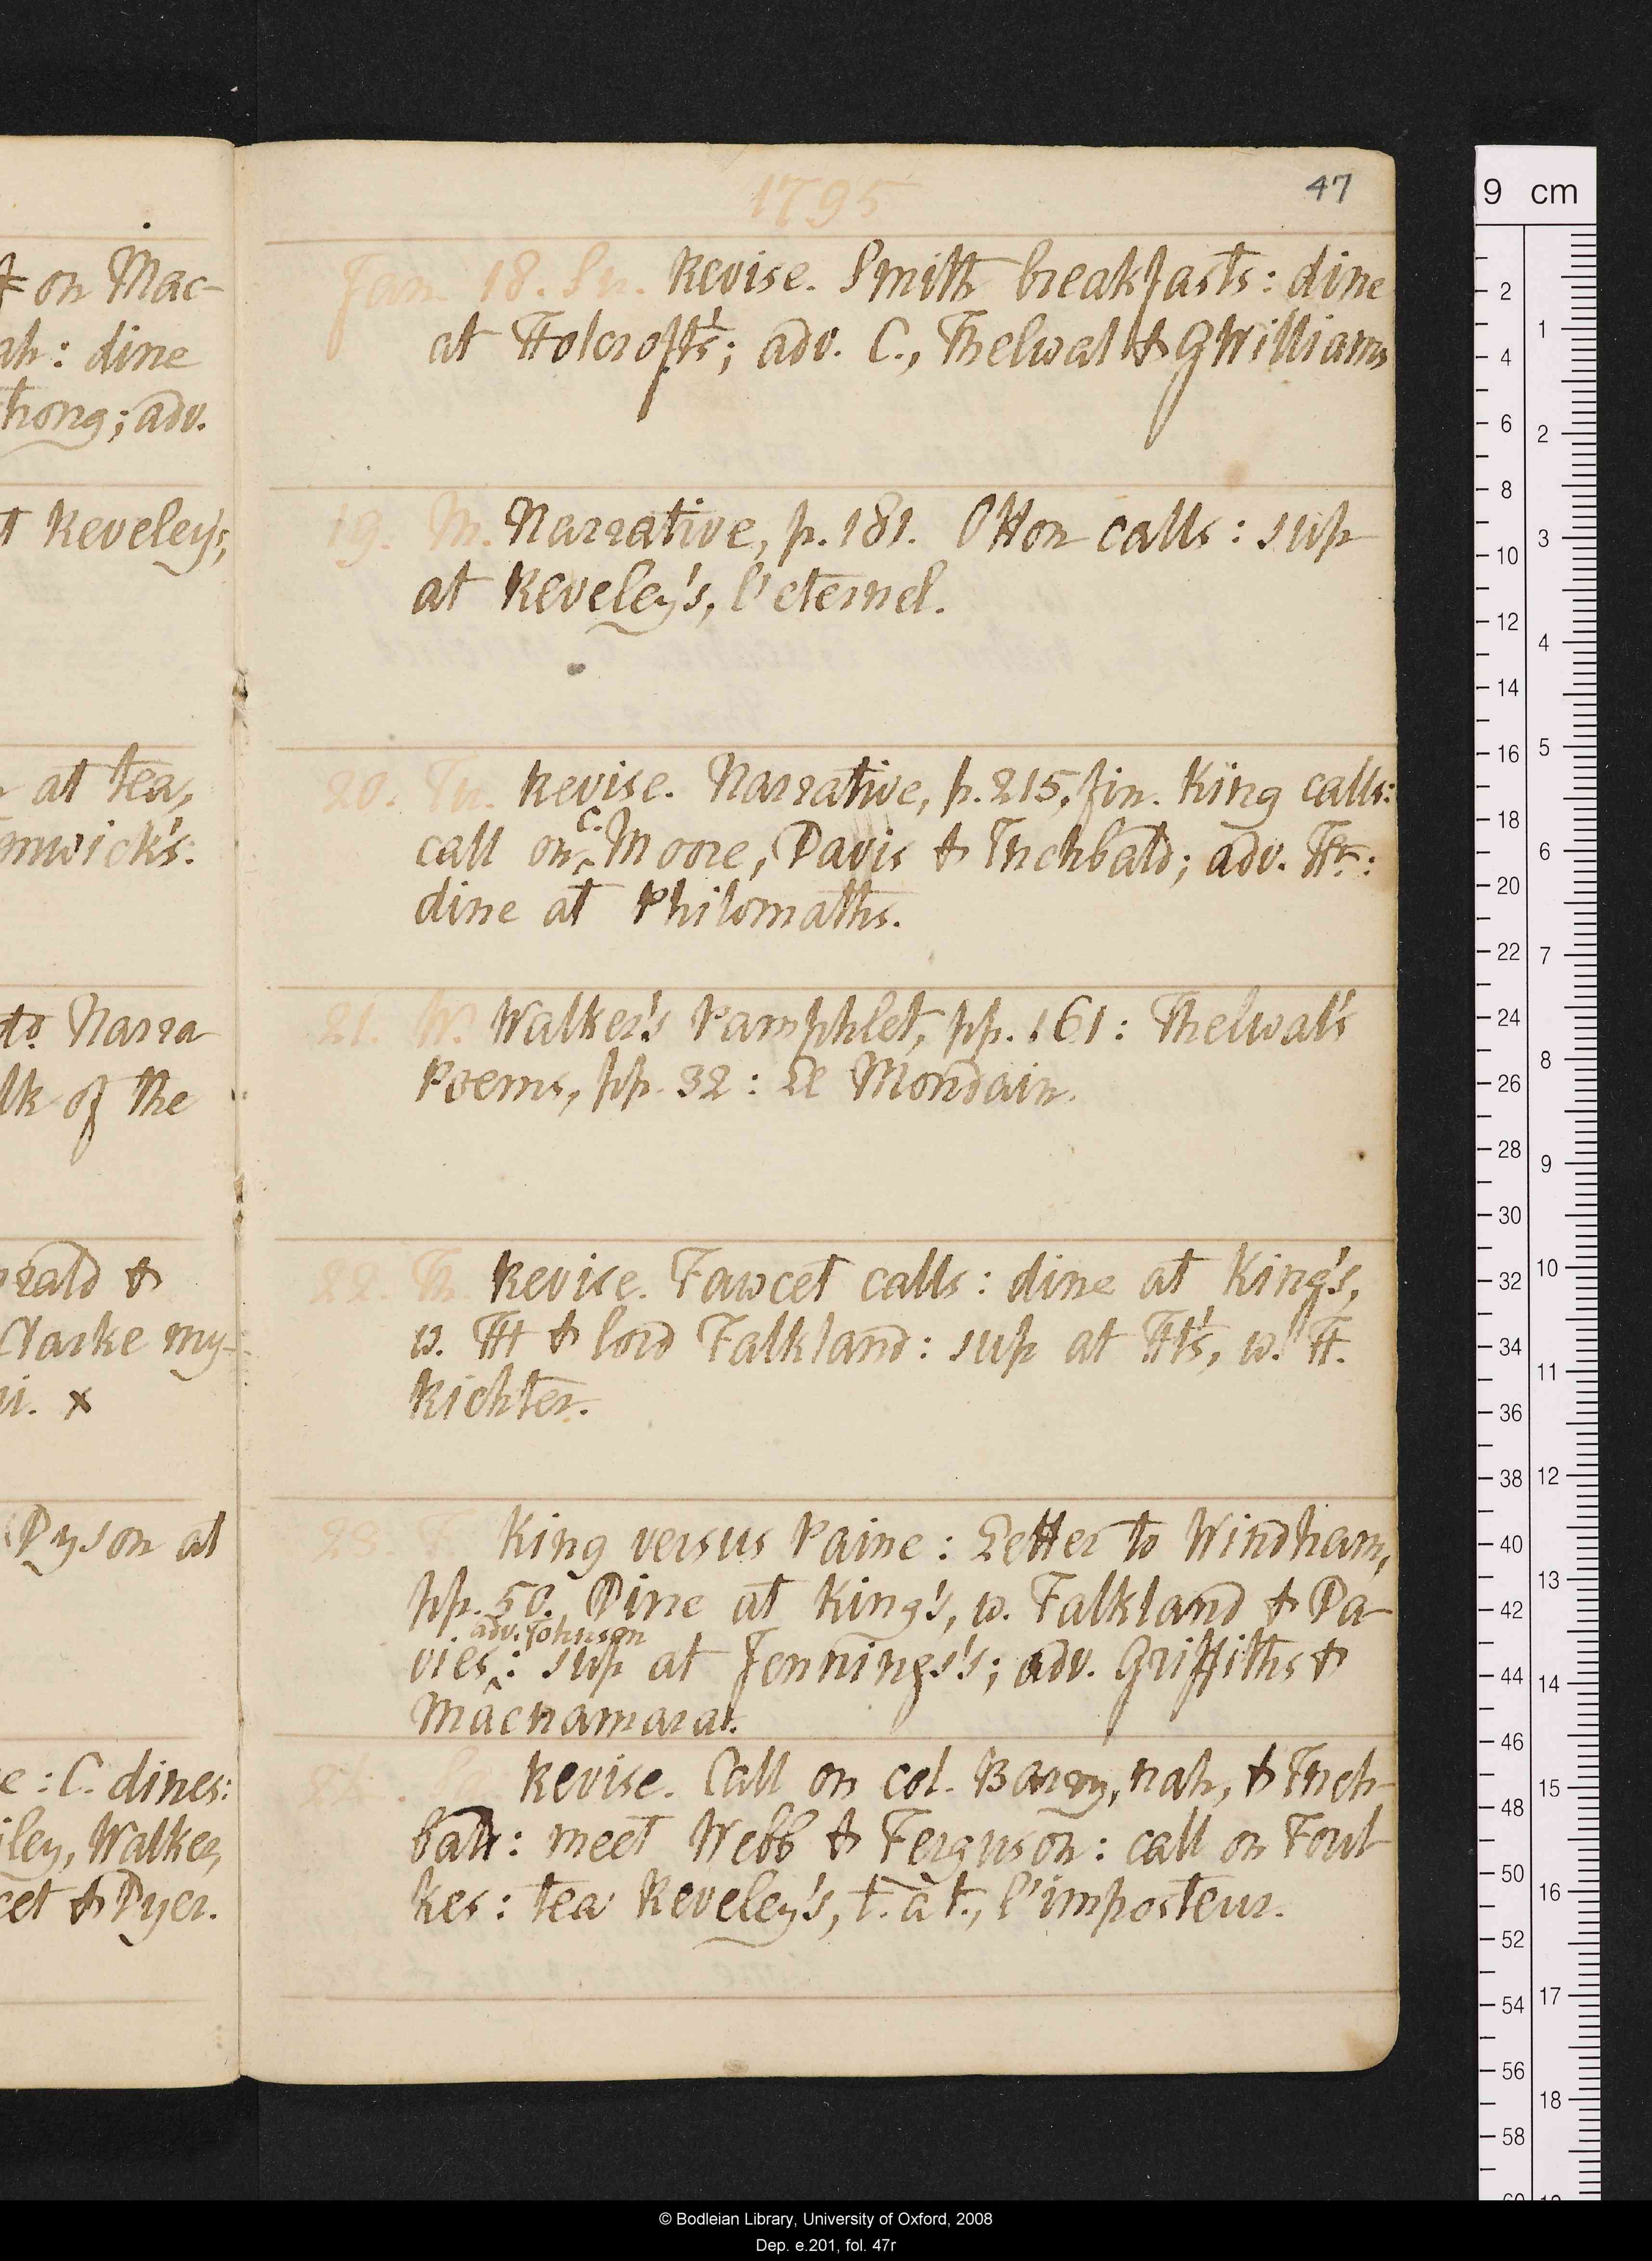 1795
47
Jan. 18. Su. Revise. Smith breakfasts: dine
at Holcroft's; adv. C., Thelwal & GWilliams
19. M. Narrative, p. 181. Otton calls: sup
at Reveley's, l'eternel.
20. Tu. Revise. Narrative, p. 215, fin. King calls:
call on C. Moore, Davis & Inchbald; adv. Ht:
dine at Philomaths.
21. W. Walker's Pamphlet, pp. 161: Thelwal's
Poems, pp. 32: Le Mondain.
22. Th. Revise. Fawcet calls: dine at King's,
w. Ht & lord Falkland: sup at Ht's, w. H.
Richter.
23. F. King versus Paine: Letter to Windham,
pp. 50. Dine at King's, w. Falkland & Da-
adv. Johnson
vies: sup at Jennings's; adv. Griffiths &
Macnamara.
24. Revise. Call on col. Barry, nah, & Inch-
bald: meet Webb & Ferguson: call on Foul-
kes: tea Reveley's, t. à t., l'imposteur.
& on Mac-
ah: dine
hong; adv.
t Reveley's,
at tea,
nwick's.
to. Narra
lk of the
rald &
Clarke my-
vi. x
Dyson at
e: C. dines:
iley, Walker,
cet & Dyer.
9 cm
2
4
6
8
10
12
14
16
18
20
22
24
26
28
30
32
34
36
38
40
42
44
46
48
50
52
54
56
58
1
2
3
4
5
6
7
8
9
10
11
12
13
14
15
16
17
18
© Bodleian Library, University of Oxford, 2008
Dep. e.201, fol. 47r